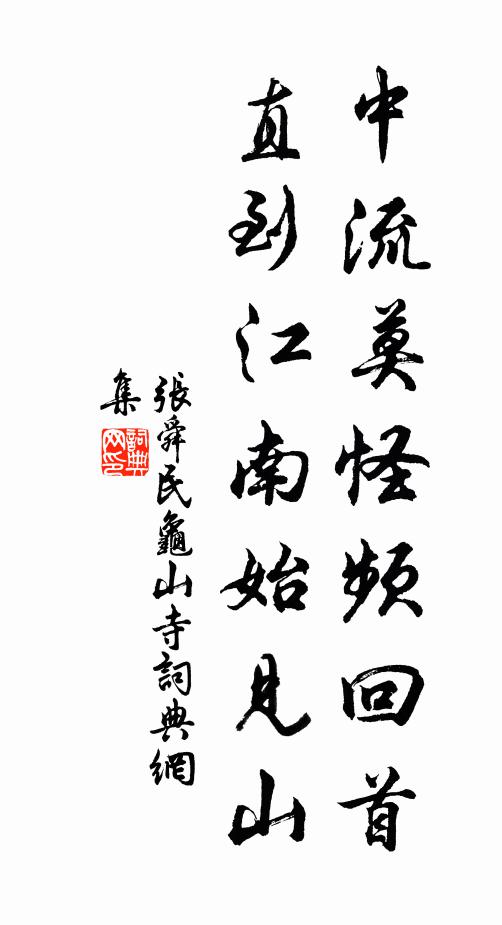 中流莫怪頻回首
直到江南始見山
張舜民龜山寺詞典網
集
詞典网印